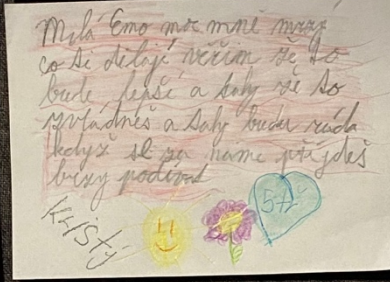 Milá Emo moc mně mrzy
co si dělají věřim že to
bude lepší a taky že to
zvládneš a taky budu ráda
když se za name přijdeš
brzy podívat
Kristý
5tř